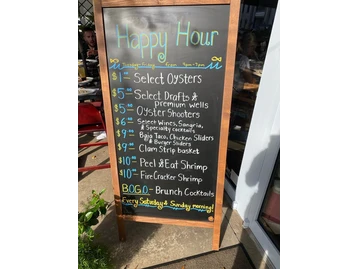 Happy Hour
from 4pm-7pm
$1 Select Oysters
$5 Select Drafts &
premium wells
$5 Oyster Shooters
$6 Select Wines, Sangria,
& Specialty cocktails
$9 Baja Taco, Chicken Sliders
& Burger Sliders
$9 Clam Strip basket
$10 Peel & Eat Shrimp
$10 Fire Cracker Shrimp
B.O.G.O - Brunch Cocktails
Every Saturday & Sunday morning!